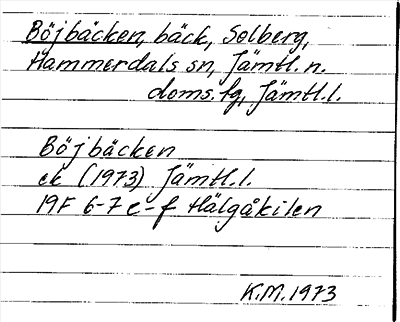 Böjbäcken, bäck, Solberg,
Hammerdals sn, Jämtl. n.
doms. fg, Jämtl. l.
Böjbäcken
ek (1973) Jämtl. l.
19F 6-7 e-f Hälgåkilen
K.M. 1973